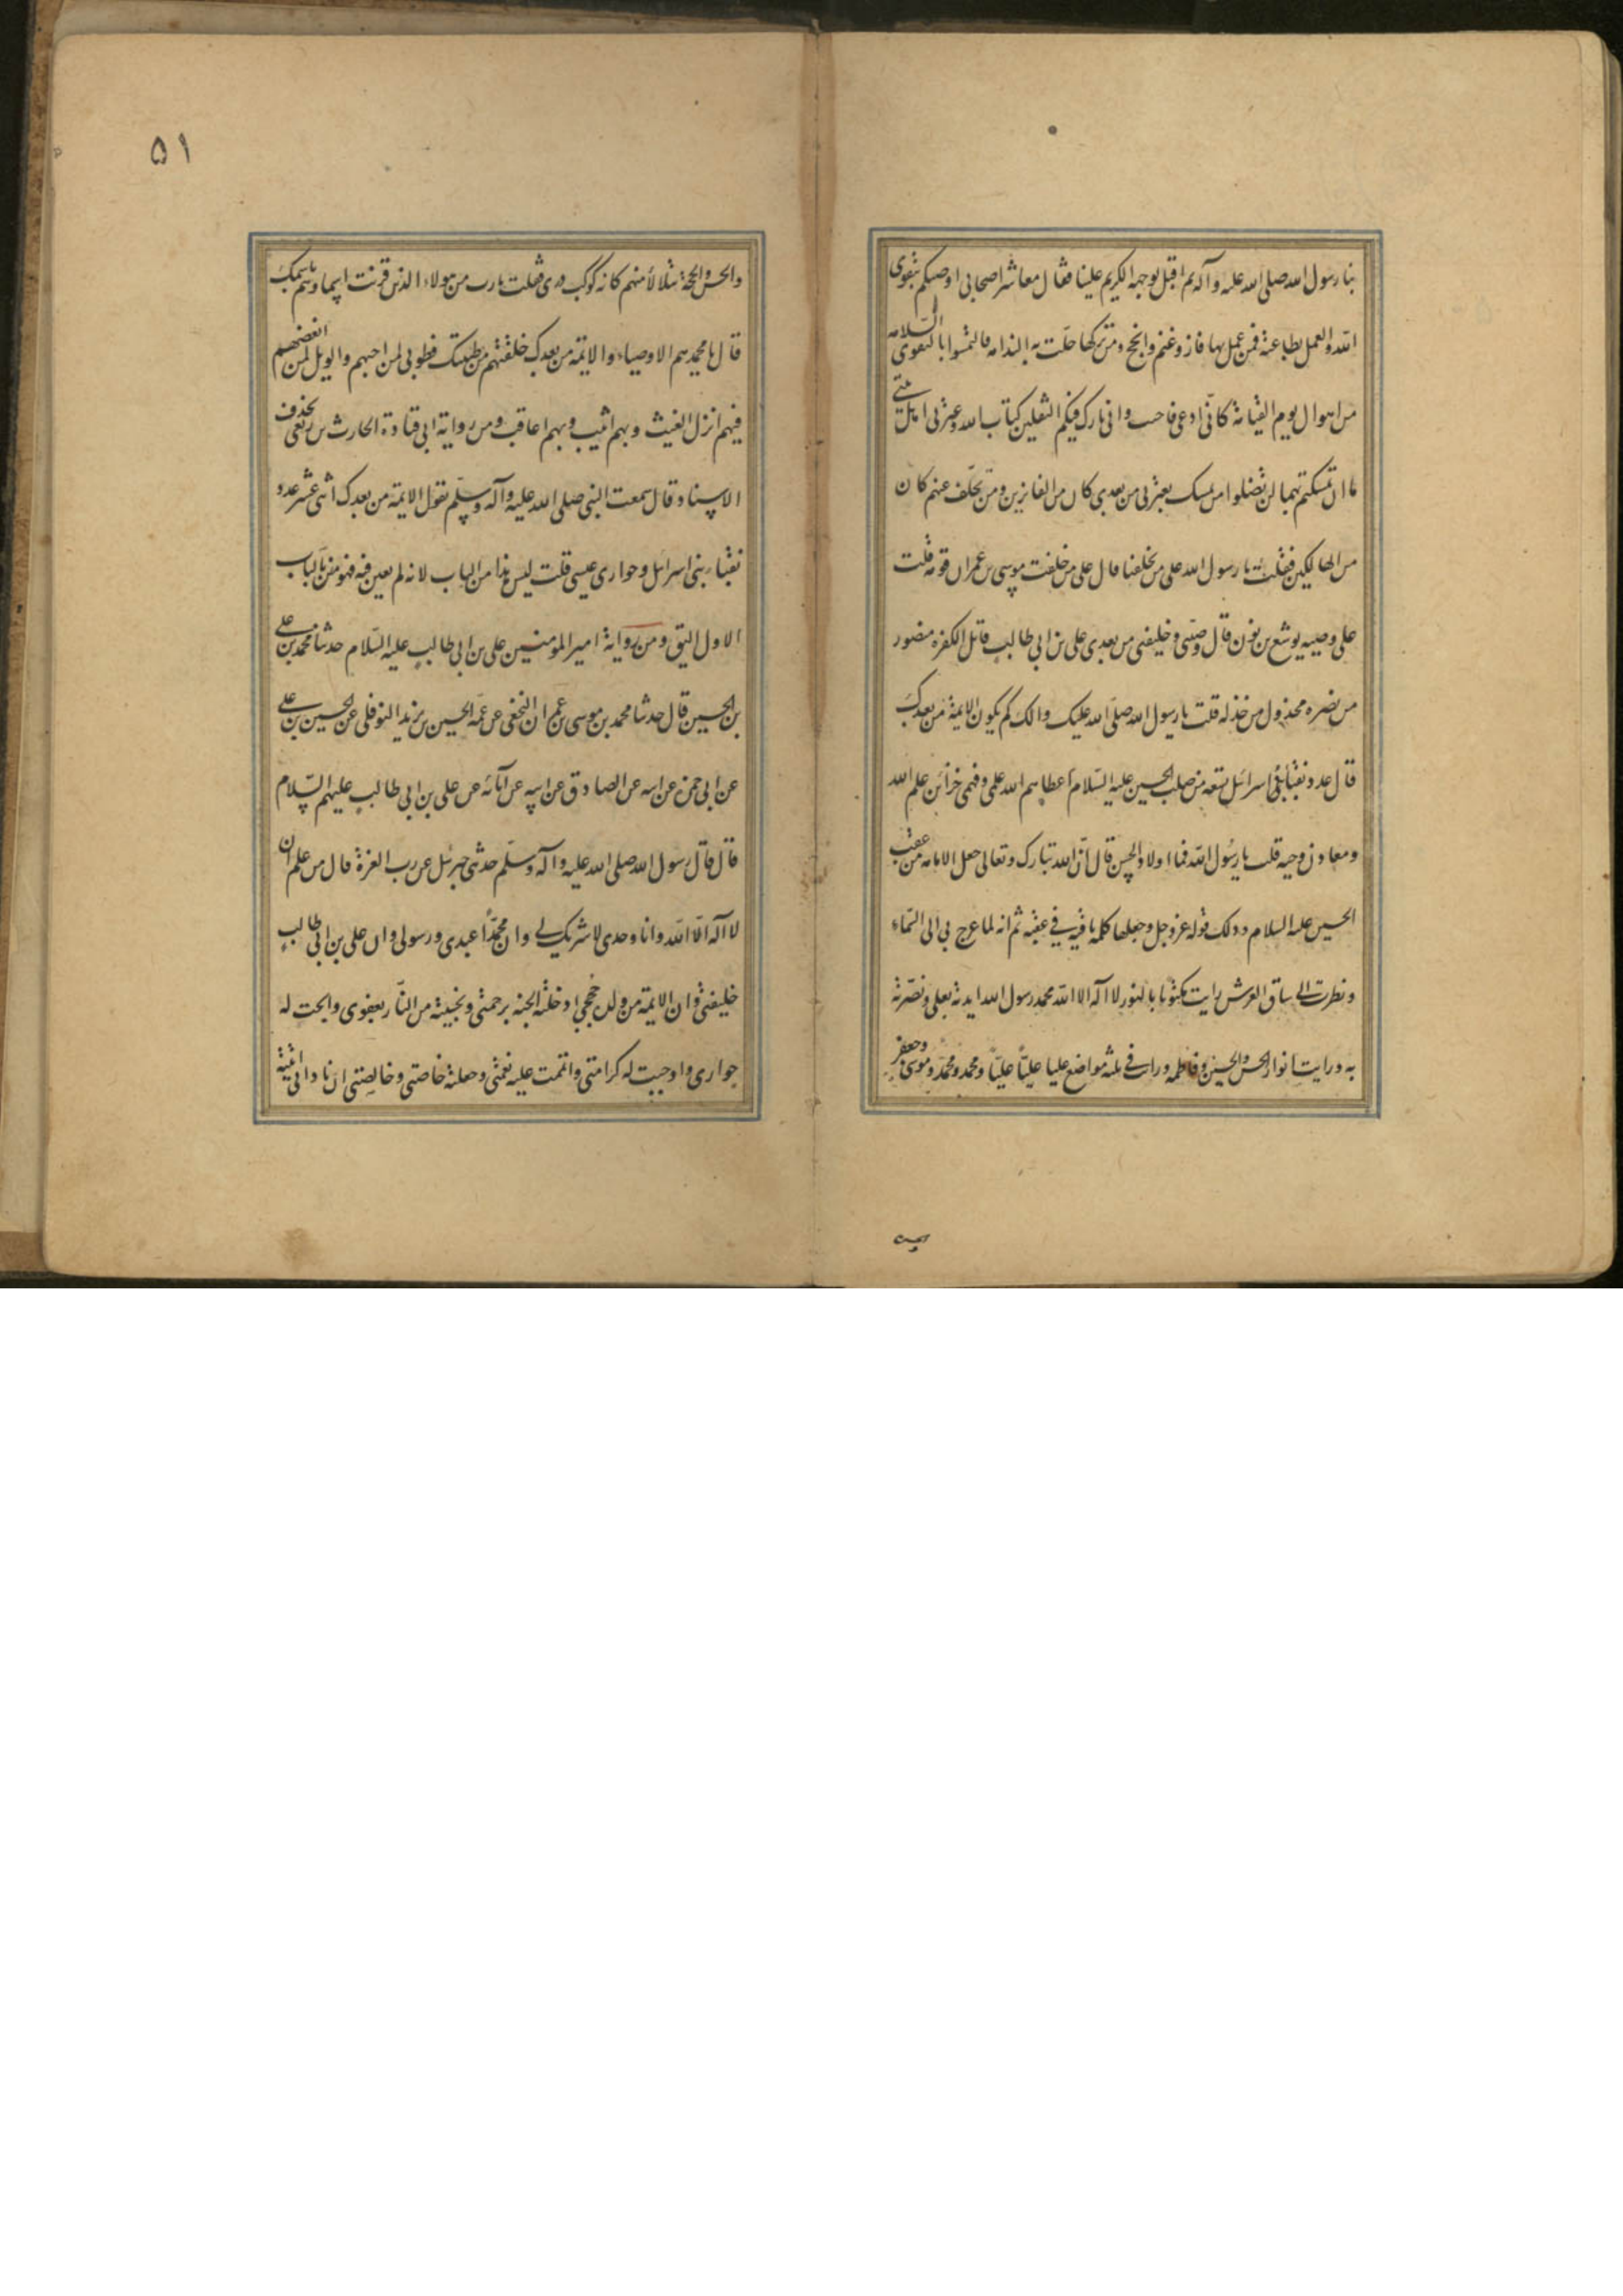 بنا رسول الله صلى الله عليه وآله ثم اقبل بوجهه الكريم علينا فقال معاشر اصحابى اوصيكم بتقوى
الله والعمل بطاعته فمن عمل بها فاز وغنم وانجح ومن تركها حلت به الندامه فالتمسوا بالتقوى السلامه
من اهوال يوم القيامة كانى ادعى فاجيب وانى تارك فيكم الثقلين كتاب الله وعترتى اهل بيتى
ما ان تمسكتم بهما لن تضلوا من تمسك بعترتى من بعدى كان من الفايزين ومن تخلف عنهم كان
من الهالكين فقلت يا رسول الله على من تخلفنا قال على من خلفت موسى بن عمران قومه قلت
على وصيه يوشع بن نون قال وصيى وخليفتى من بعدى على بن ابى طالب قاتل الكفره منصور
من نصره مخذول من خذله قلت يا رسول الله صلى الله عليك والك كم يكون الايمة من بعدك
قال عدد نقبا بنى اسرائل تسعه من صلب الحسين عليه السلام اعطاهم الله علمى وفهمى خزائن علم الله
ومعادن وحيه قلت يا رسول الله فما اولاد الحسن قال ان الله تبارك وتعالى جعل الامامه من عقب
الحسين عليه السلام وذلك قوله عز وجل وجعلها كلمة باقية فى عقبه ثم انه لما عرج بى الى السماء
ونظرت الى ساق العرش رايت مكتوبا بالنور لا اله الا الله محمد رسول الله ايدته بعلى ونصرته
به ورايت انوار الحسن والحسين وفاطمه ورايت فى ثلثه مواضع عليا عليا عليا ومحمد ومحمد وموسى وجعفر
٥١
والحسن والحجة يتلألأ منهم كانه كوكب درى فقلت يارب من هولاء الذين قرنت اسماوهم باسمك
قال يا محمد هم الاوصياء والايمة من بعدك خلقتهم من طينتك فطوبى لمن احبهم والويل لمن ابغضهم
فبهم انزل الغيث وبهم اثيب وبهم اعاقب ومن رواية ابى قتادة الحارث بن ربعى بحذف
الاسناد قال سمعت النبى صلى الله عليه وآله وسلم يقول الايمة من بعدى اثنى عشر عدد
نقباء بنى اسرائل وحوارى عيسى قلت ليس هذا من الباب لانه لم يعين فيه فهو من بالباب
الاول اليق ومن رواية امير المومنين على بن ابى طالب عليه السلام حدثنا محمد بن على
بن الحسين قال حدثنا محمد بن موسى بن عمران النخعى عن عمه الحسين بن يزيد النوفلى عن الحسين بن على
عن ابى حمزه عن ابيه عن الصادق عن ابيه عن آبائه عن على بن ابى طالب عليهم السلام
قال قال رسول الله صلى الله عليه وآله وسلم حدثنى جبرئل عن رب العزة قال من علم ان
لا اله الا الله وانا وحدى لا شريك لى وان محمداً عبدى ورسولى وان على بن ابى طالب
خليفتى وان الايمة من ولده حججى ادخلته الجنه برحمتى ونجيته من النار بعفوى وابحت له
جوارى واوجبت له كرامتى واتممت عليه نعمتى وجعلته خاصتى وخالصتى ان نادانى لبيته